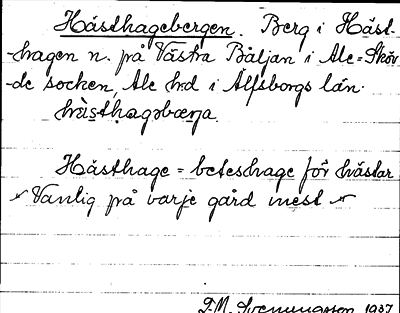 Hästhagebergen. Berg i Häst-
-hagen n. på Västra Båljan i Ale=Sköv
-de socken, Ale hrd i Älfsborgs län.
hästhagebärja.
Hästhage = beteshage för hästar
"Vanlig på varje gård mest"
J.M. Svenningsson 1937